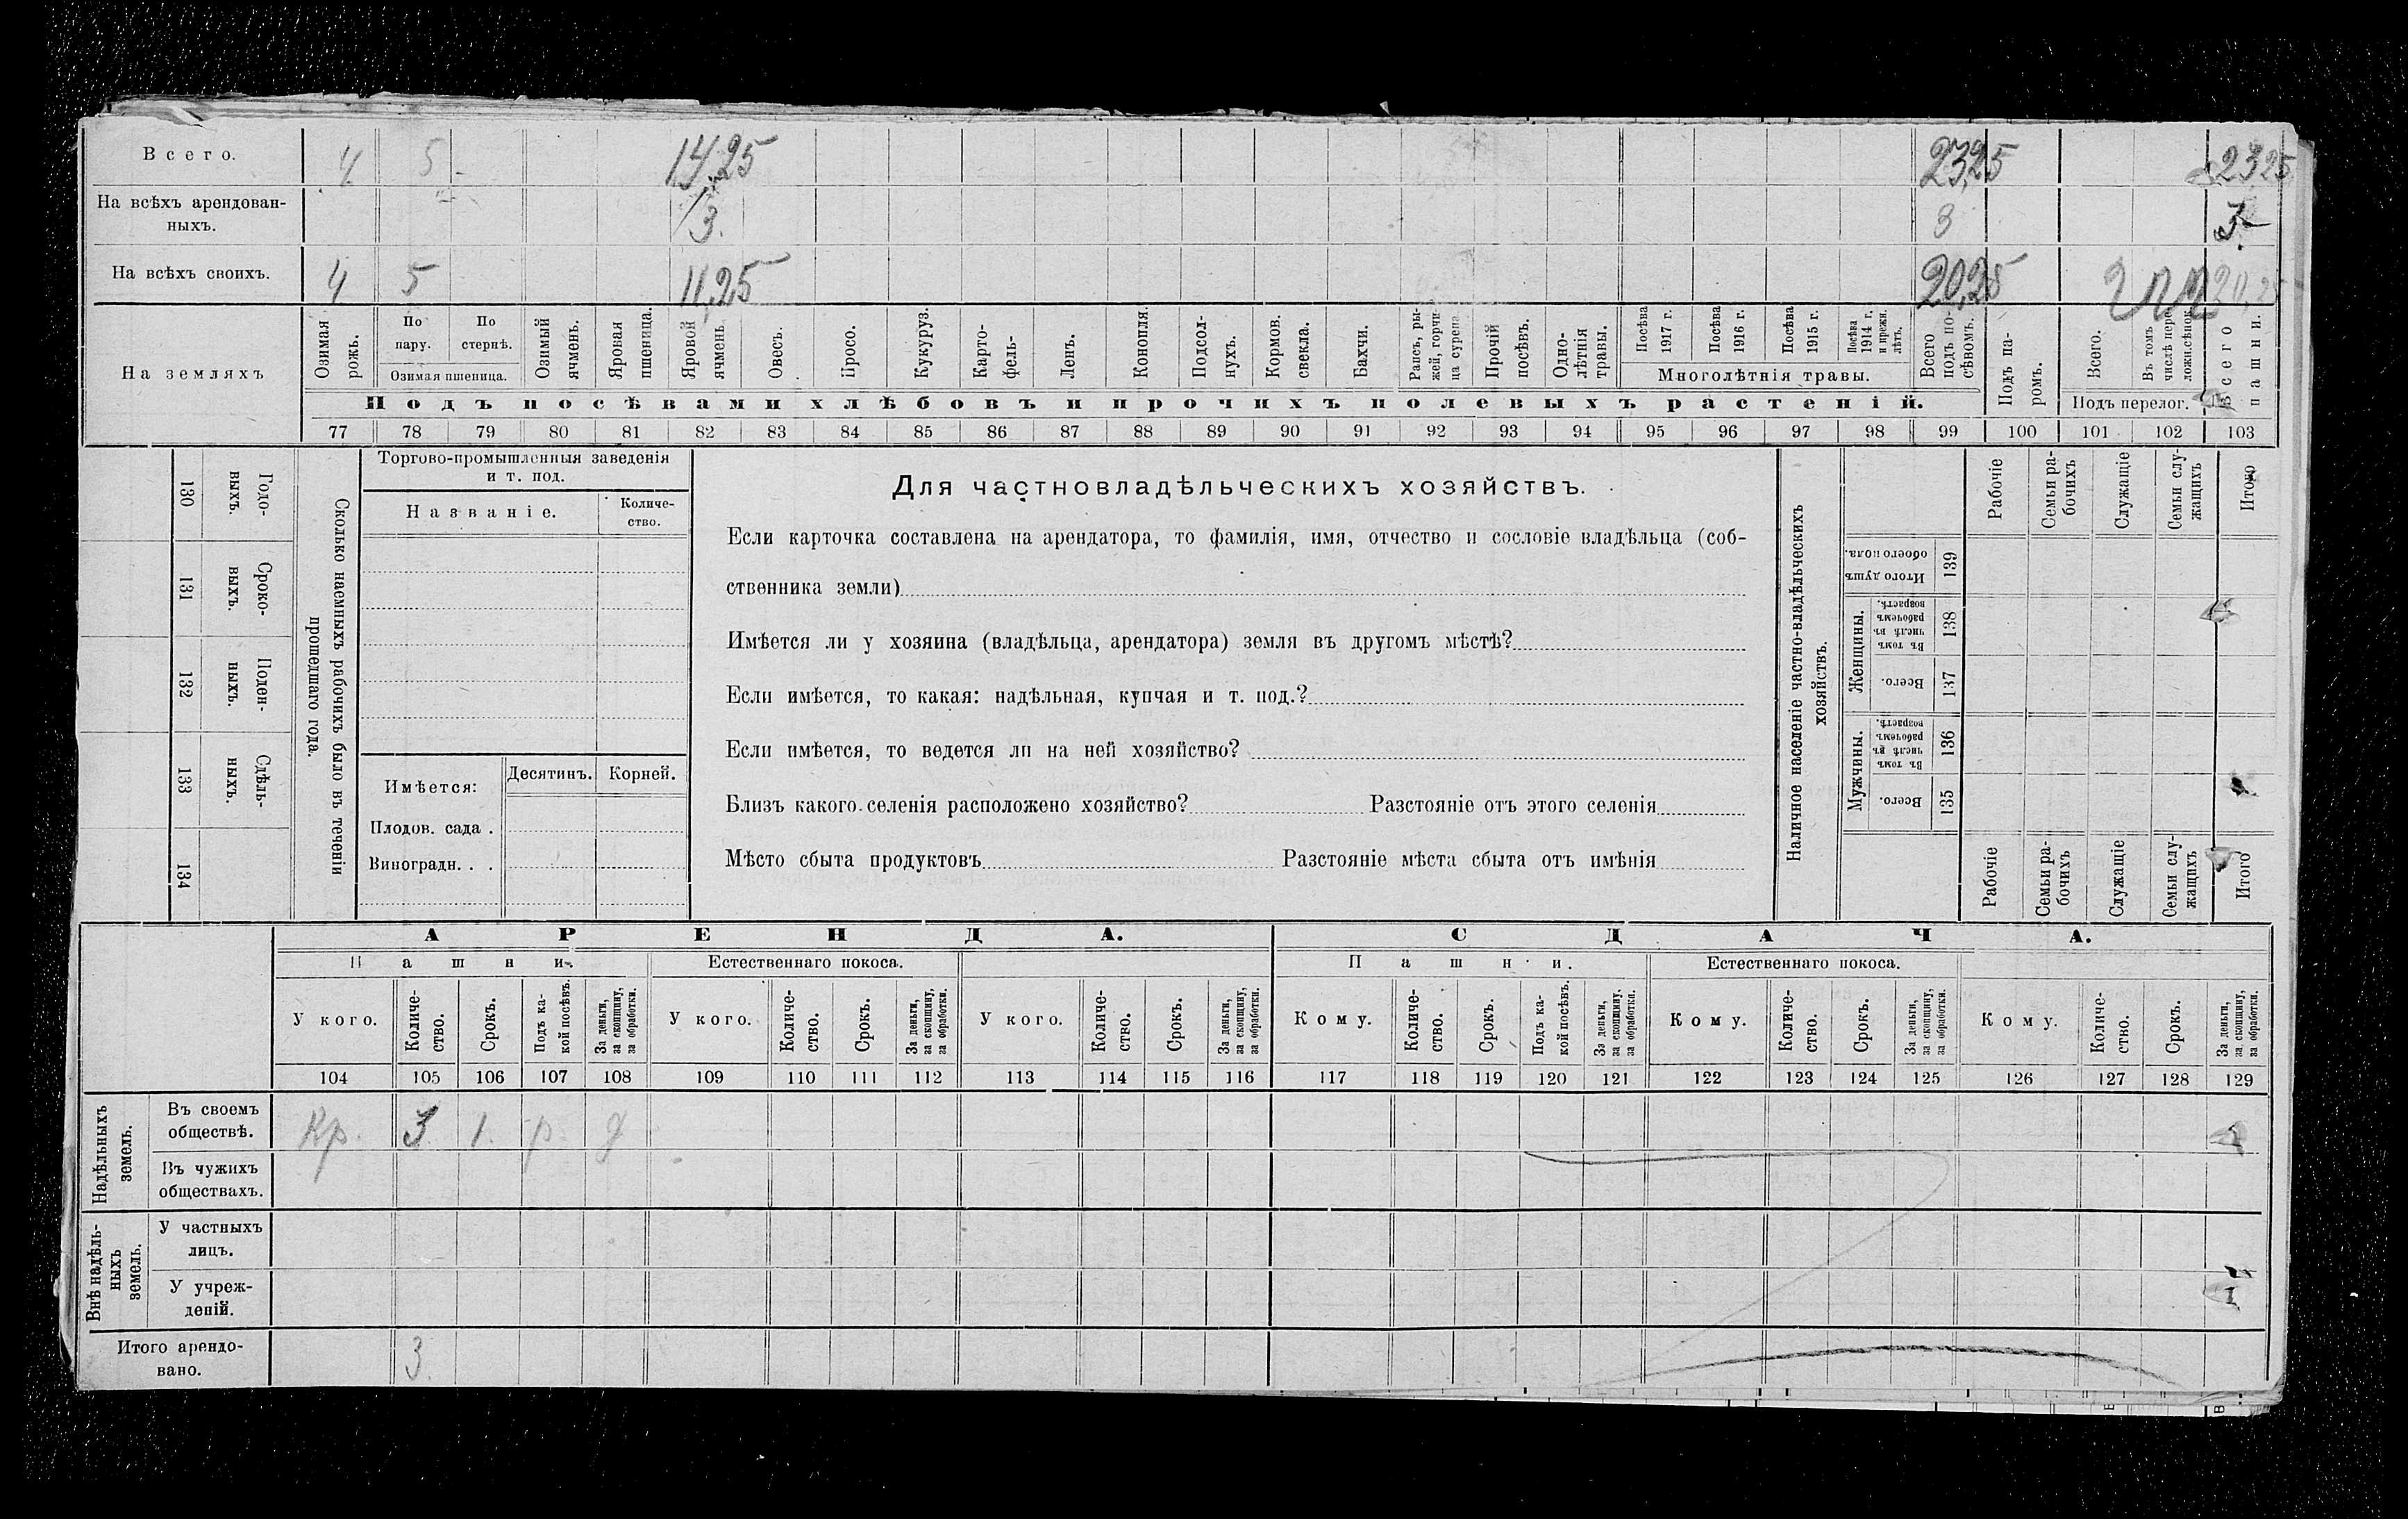 Всего. 4 5 14,25 23,25 2325
На всѣхъ арендован-
ныхъ. 3. 3 3
На всѣхъ своихъ. 4 5 11,25 20,25 20,25
На земляхъ
Озимая рожь.
По пару.
По стернѣ.
Озимая пшеница.
Озимый ячмень.
Яровая пшеница.
Яровой ячмень
Овесъ.
Просо.
Кукуруз.
Карто-
фель-
Ленъ.
Конопля.
Подсол-
нухъ.
Кормов.
свекла.
Бахчи.
Рапсъ, ры-
жей, горчи-
ца сурепа
Прочій
посѣвъ.
Одно-
лѣтнія
травы.
Посѣва
1917 г.
Посѣва
1916 г.
Посѣва
1915 г.
Посѣва
1914 г.
и прежн.
лѣтъ.
Многолѣтнія травы.
Всего
подъ по-
сѣвомъ.
Подъ па-
ромъ.
Всего.
Въ томъ
числѣ пере
ложн.сѣнок.
Подъ перелог.
Всего
пашни.
Подъ посѣвами хлѣбовъ и прочихъ полевыхъ растеній.
77 78 79 80 81 82 83 84 85 86 87 88 89 90 91 92 93 94 95 96 97 98 99 100 101 102 103
Годо-
выхъ.
130
Сроко-
выхъ.
131
Поден-
ныхъ.
132
Сдѣль-
ныхъ.
133
134
Сколько наемныхъ рабочихъ было въ теченіи
прошедшаго года.
Торгово-промышленныя заведенія
и т. под.
Названіе.
Количе-
ство.
Имѣется:
Десятинъ.
Корней.
Плодов. сада .
Виноградн. . .
Для частновладѣльческихъ хозяйствъ.
Если карточка составлена на арендатора, то фамилія, имя, отчество и сословіе владѣльца (соб-
ственника земли)
Имѣется ли у хозяина (владѣльца, арендатора) земля въ другомъ мѣстѣ?
Если имѣется, то какая: надѣльная, купчая и т. под.?
Если имѣется, то ведется ли на ней хозяйство?
Близъ какого селенія расположено хозяйство? Разстояніе отъ этого селенія
Мѣсто сбыта продуктовъ Разстояніе мѣста сбыта отъ имѣнія
Наличное населеніе частно-владѣльческихъ
хозяйствъ.
Рабочіе
Семьи ра-
бочихъ
Служащіе
Семьи слу-
жащихъ
Итого
Итого душъ
обоего пола.
139
Женщины.
Въ томъ
числѣ въ
рабочемъ
возрастѣ.
138
Всего.
137
Мужчины.
Въ томъ
числѣ въ
рабочемъ
возрастѣ.
136
Всего.
135
Рабочіе
Семьи ра-
бочихъ
Служащіе
Семьи слу-
жащихъ
Итого
АРЕНДА. СДАЧА.
Пашни. Естественнаго покоса. Пашни. Естественнаго покоса.
У кого.
Количе-
ство.
Срокъ.
Подъ ка-
кой посѣвъ.
За деньги,
за скопщину,
за обработки.
У кого.
Количе-
ство.
Срокъ.
За деньги,
за скопщину,
за обработки.
У кого.
Количе-
ство.
Срокъ.
За деньги,
за скопщину,
за обработки.
Кому.
Количе-
ство.
Срокъ.
Подъ ка-
кой посѣвъ.
За деньги,
за скопщину,
за обработки.
Кому.
Количе-
ство.
Срокъ.
За деньги,
за скопщину,
за обработки.
Кому.
Количе-
ство.
Срокъ.
За деньги,
за скопщину,
за обработки.
104 105 106 107 108 109 110 111 112 113 114 115 116 117 118 119 120 121 122 123 124 125 126 127 128 129
Надѣльныхъ
земель.
Въ своемъ
обществѣ. Кр. 3 1. р д
Въ чужихъ
обществахъ.
Внѣ надѣль-
ныхъ
земель.
У частныхъ
лицъ.
У учреж-
деній.
Итого арендо-
вано. 3